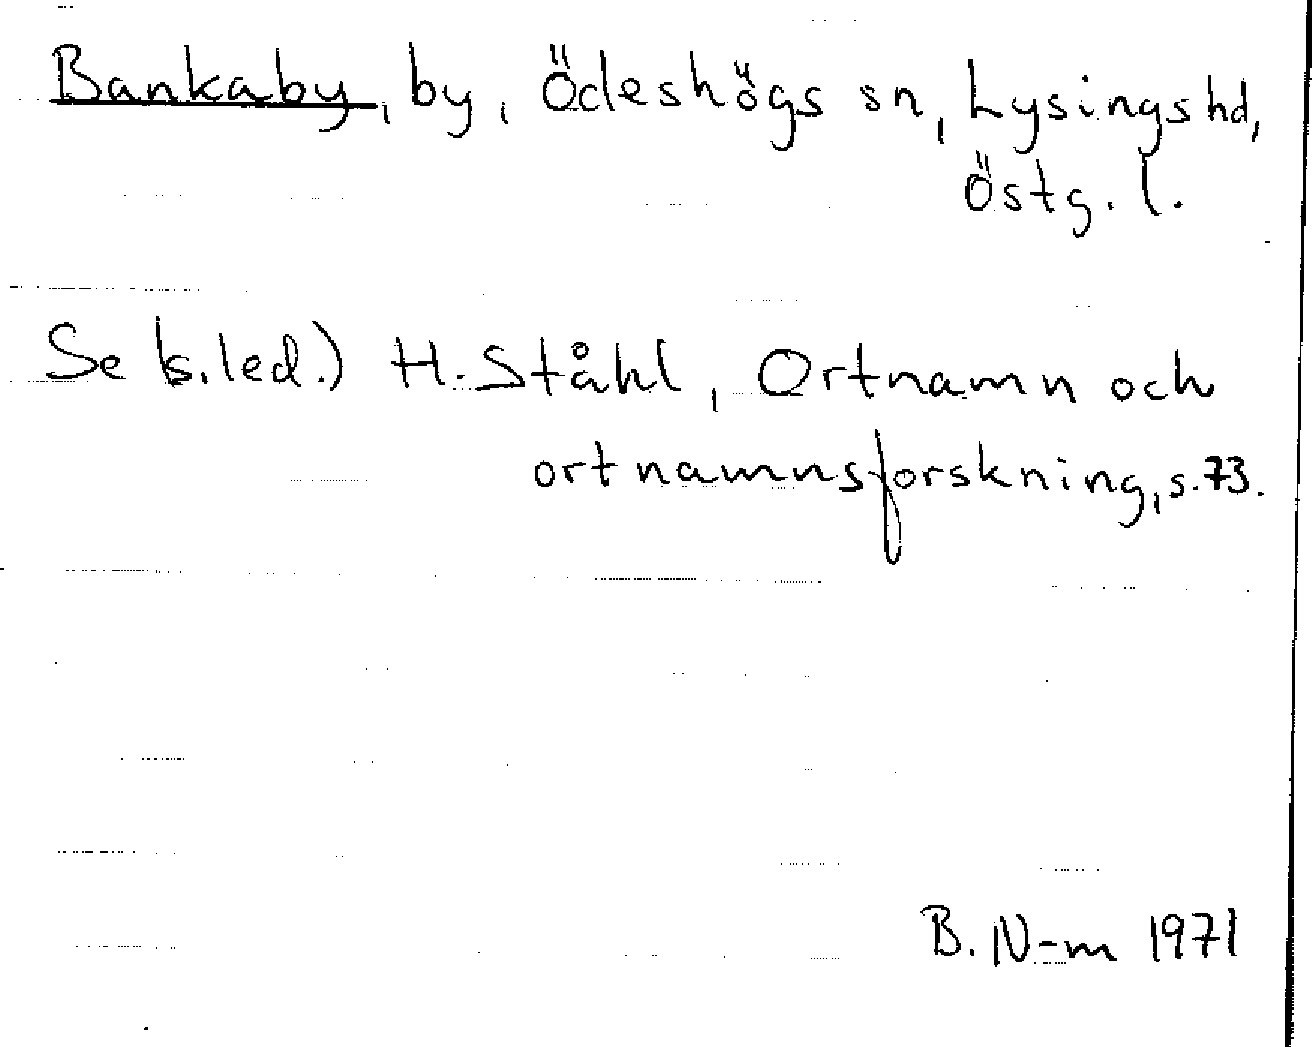 Bankaby, by, Ödeshögs sn, Lysings hd,
Östg. l.
Se (s.led.) H. Ståhl, Ortnamn och
ortnamnsforskning, s. 73.
B. N-m 1971